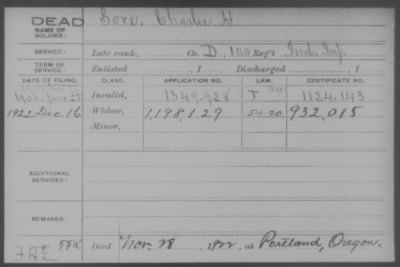 DEAD
NAME OF SOLDIER: Gore, Charles H
SERVICE: Late rank, Co. D, 100 Reg't Ind. Inf.
TERM OF SERVICE: Enlisted , 1 Discharged , 1
DATE OF FILING. CLASS. APPLICATION NO. LAW. CERTIFICATE NO.
1904 June 27 Invalid, 1349.928 1124.143
1922 Dec 16 Widow, 1,198,129 932,015
Minor,
ADDITIONAL SERVICES:
REMARKS:
Died Nov. 28 1922, at Portland, Oregon.